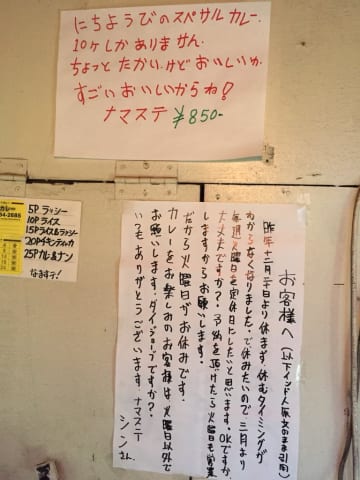 にちようびのスペサルカレー.
10ケしかありません.
ちょっとたかい.けどおいしいか.
すごいおいしいからね!
ナマステ ¥850-
カレー
5P ラッシー
10P ライス
15P ライス&ラッシー
20P チキンティッカ
25P カレー&ナン
なるます!
お客様へ(以下インド人原文のまま引用)
昨年十二月二十日より休まず 休むタイミングが
わからなくなりました.で休みたいので 三月より
毎週火曜日を定休日にしたいと思います。OKですか
大丈夫ですか?予約を頂けたら火曜日も営業
しますからお願いします。
だから火曜日がお休みです.
カレーをお楽しみのお客様は火曜日以外で
お願いします。ダイジョーブですか?
いつもありがとうございます.ナマステ
シンさん.